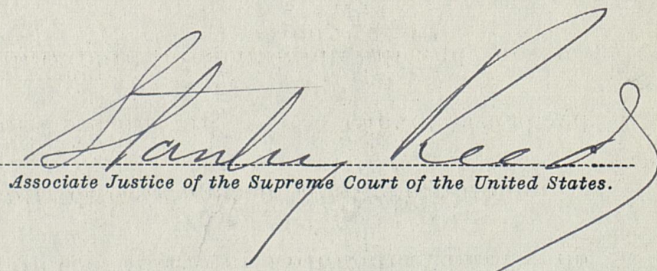 Stanley Reed
Associate Justice of the Supreme Court of the United States.